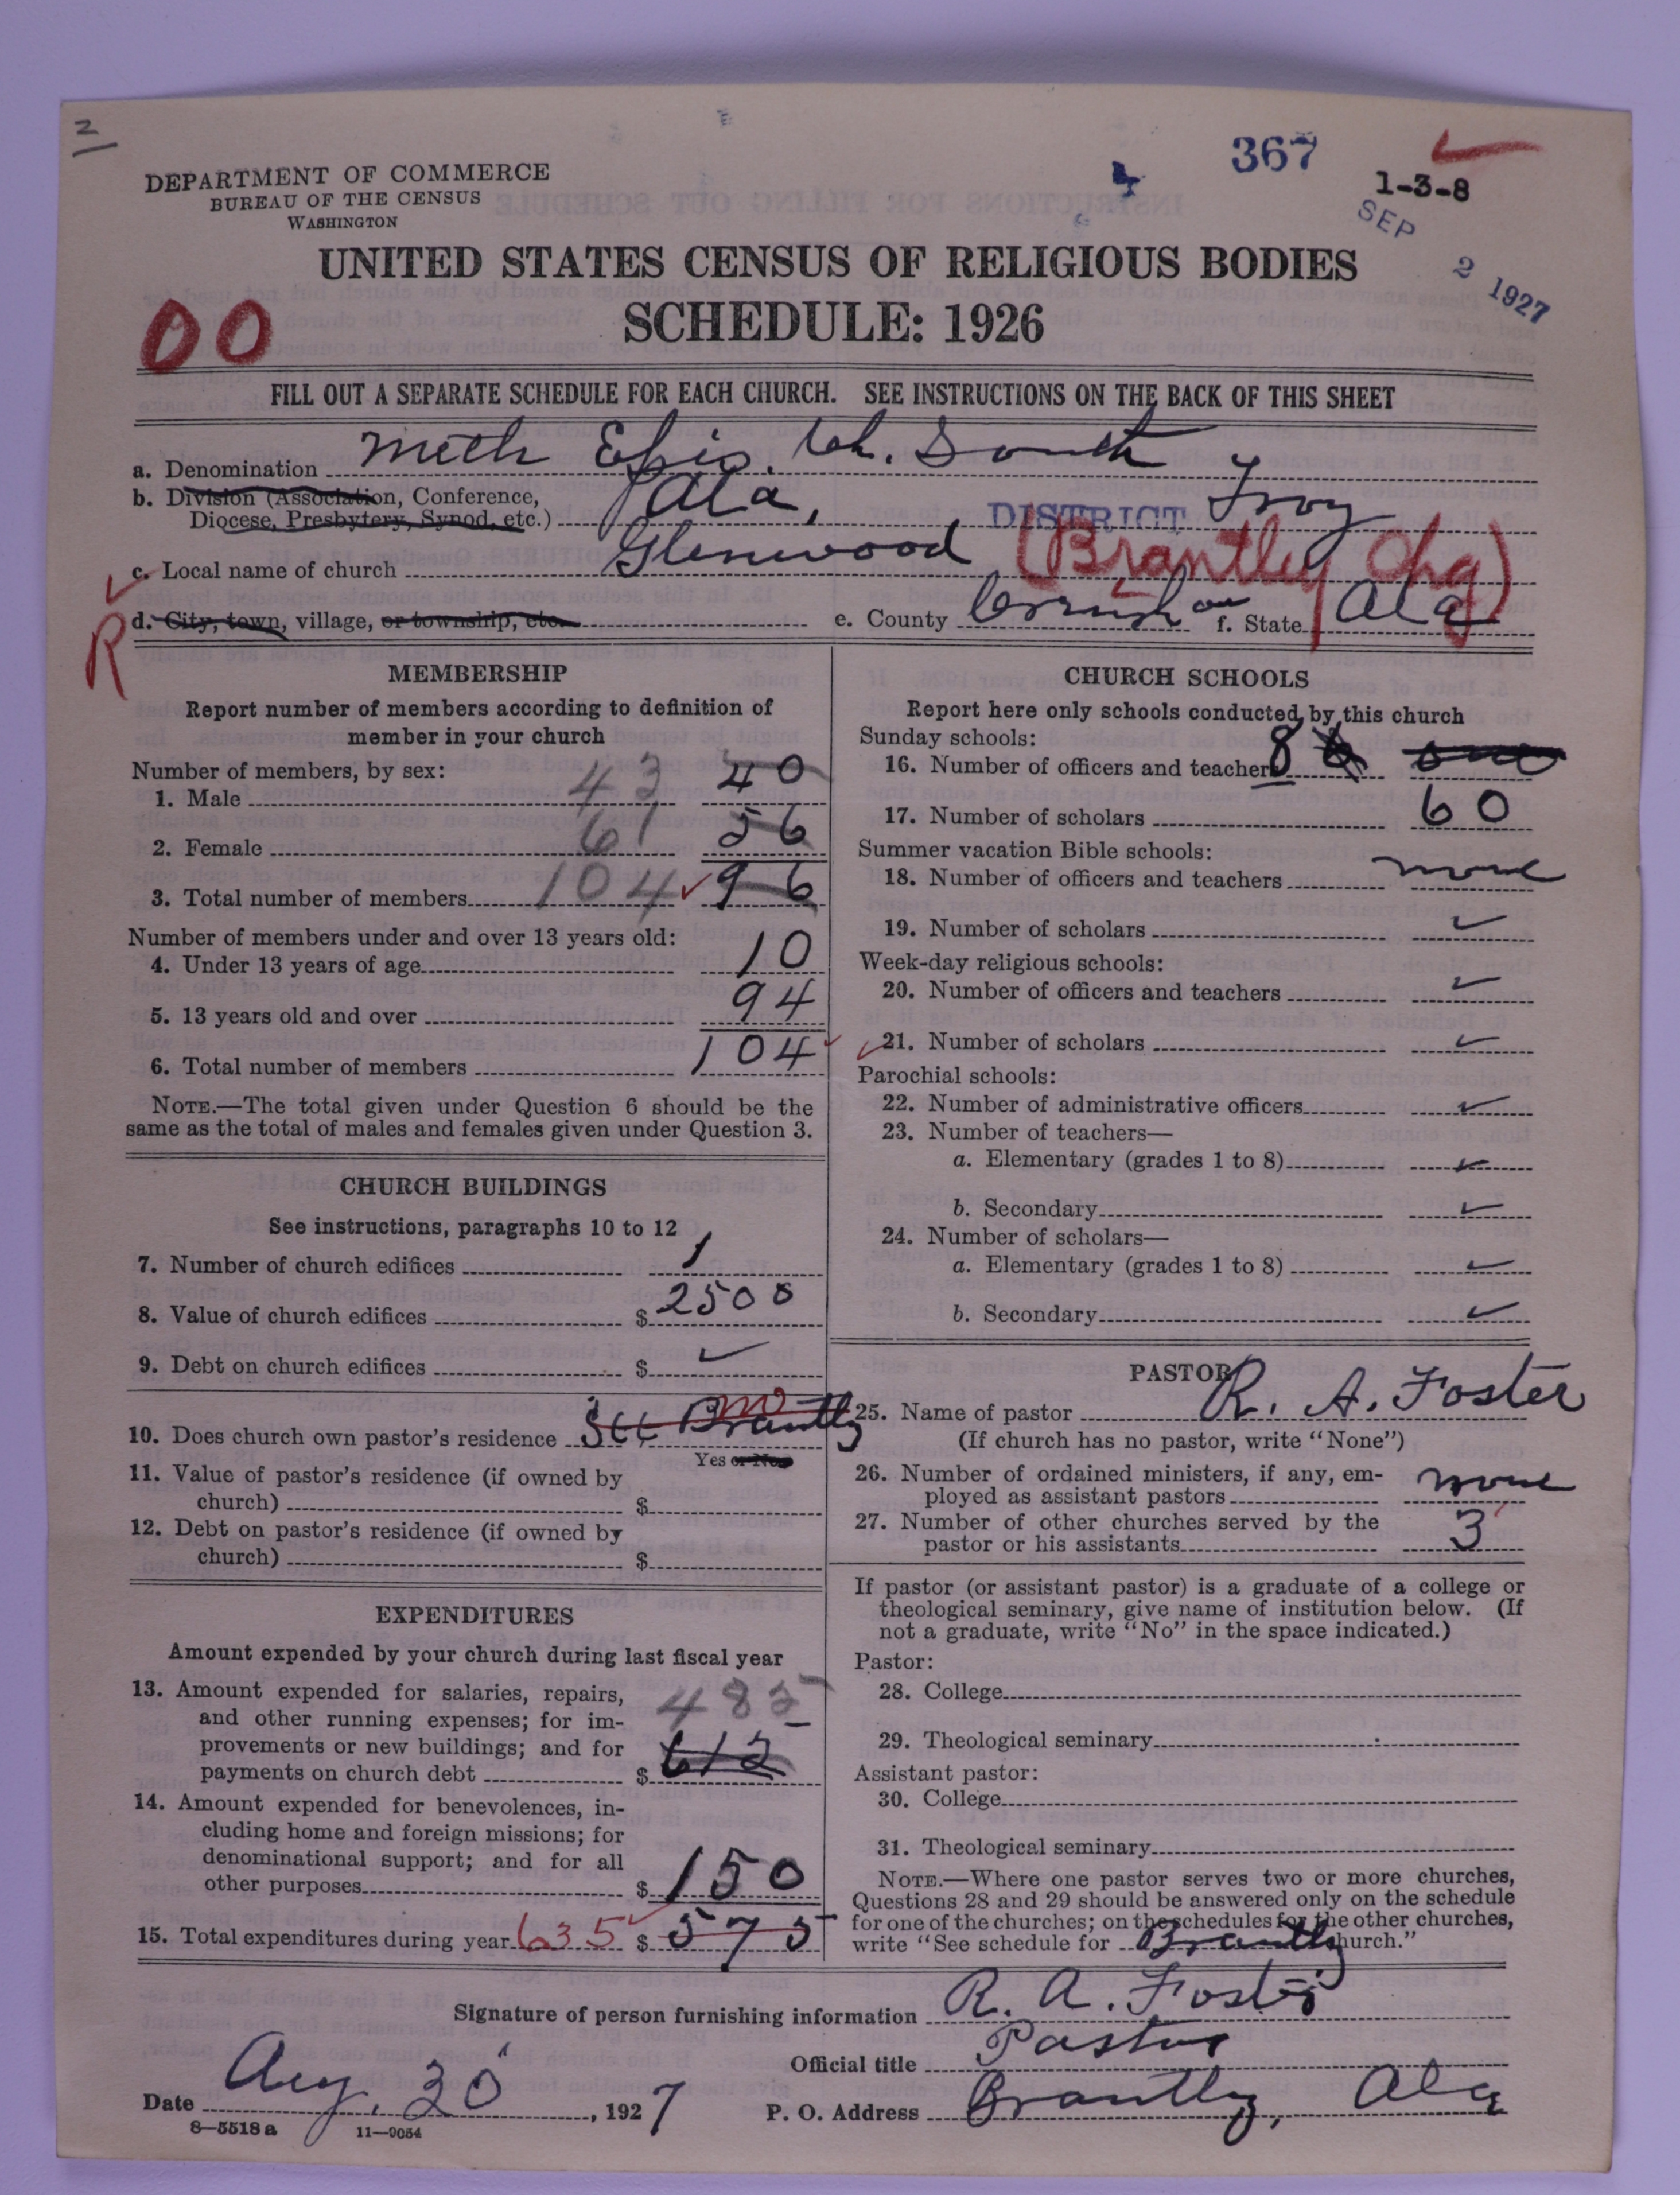 2
367
1-3-8
SEP 2 1927
DEPARTMENT OF COMMERCE
BUREAU OF THE CENSUS
WASHINGTON
UNITED STATES CENSUS OF RELIGIOUS BODIES
SCHEDULE: 1926
00
FILL OUT A SEPARATE SCHEDULE FOR EACH CHURCH. SEE INSTRUCTIONS ON THE BACK OF THIS SHEET
a. Denomination Meth Epis. Ch. South
b. Division (Association, Conference,
Diocese, Presbytery, Synod, etc.) Ala, DISTRICT Troy
c. Local name of church Glenwood (Brantley Chg)
R
d. City, town, village, or township, etc. e. County Crenshaw f. State Ala
MEMBERSHIP
Report number of members according to definition of
member in your church
Number of members, by sex:
1. Male 43 40
2. Female 61 56
3. Total number of members 104 96
Number of members under and over 13 years old:
4. Under 13 years of age 10
5. 13 years old and over 94
6. Total number of members 104
NOTE.—The total given under Question 6 should be the
same as the total of males and females given under Question 3.
CHURCH BUILDINGS
See instructions, paragraphs 10 to 12
7. Number of church edifices 1
8. Value of church edifices $ 2500
9. Debt on church edifices $ ✓
10. Does church own pastor's residence See Brantly no
Yes or No
11. Value of pastor's residence (if owned by
church) $
12. Debt on pastor's residence (if owned by
church) $
EXPENDITURES
Amount expended by your church during last fiscal year
13. Amount expended for salaries, repairs, 485
and other running expenses; for im-
provements or new buildings; and for
payments on church debt $ 612
14. Amount expended for benevolences, in-
cluding home and foreign missions; for
denominational support; and for all
other purposes $ 150
15. Total expenditures during year 635 $ 575
CHURCH SCHOOLS
Report here only schools conducted by this church
Sunday schools:
16. Number of officers and teachers 8
17. Number of scholars 60
Summer vacation Bible schools:
18. Number of officers and teachers none
19. Number of scholars ✓
Week-day religious schools:
20. Number of officers and teachers ✓
21. Number of scholars ✓
Parochial schools:
22. Number of administrative officers ✓
23. Number of teachers—
a. Elementary (grades 1 to 8) ✓
b. Secondary ✓
24. Number of scholars—
a. Elementary (grades 1 to 8) ✓
b. Secondary ✓
PASTOR
25. Name of pastor R. A. Foster
(If church has no pastor, write "None")
26. Number of ordained ministers, if any, em-
ployed as assistant pastors none
27. Number of other churches served by the
pastor or his assistants 3
If pastor (or assistant pastor) is a graduate of a college or
theological seminary, give name of institution below. (If
not a graduate, write "No" in the space indicated.)
Pastor:
28. College
29. Theological seminary
Assistant pastor:
30. College
31. Theological seminary
NOTE.—Where one pastor serves two or more churches,
Questions 28 and 29 should be answered only on the schedule
for one of the churches; on the schedules for the other churches,
write "See schedule for Brantly church."
Signature of person furnishing information R. A. Foster
Official title Pastor
Date Aug. 30, 1927
P. O. Address Brantly, Ala
8—5518 a 11—9054